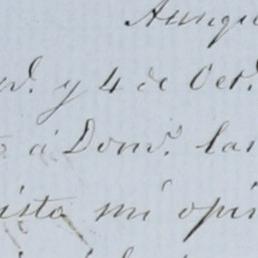 Aunqu
y 4 de Oct.
á Domr. las
ista mi opin